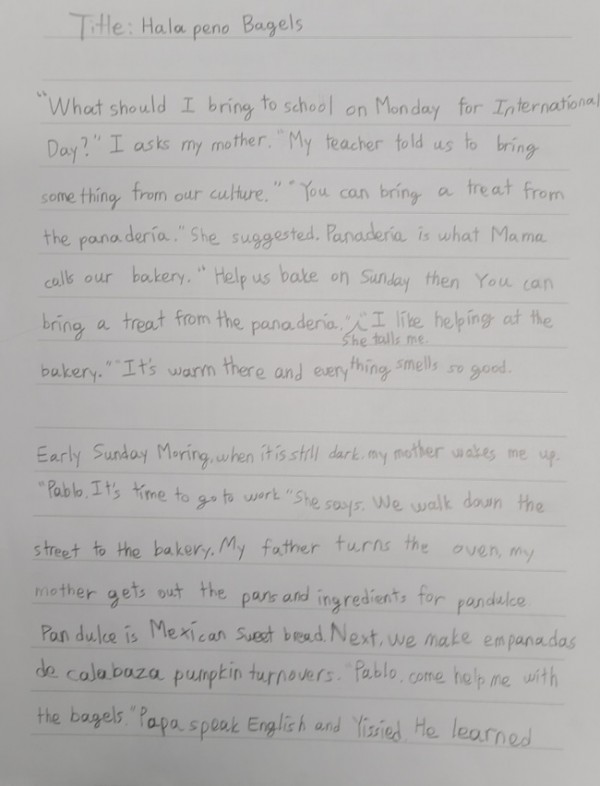 Title: Halapeno Bagels
"What should I bring to school on Monday for International
Day?" I asks my mother. "My teacher told us to bring
something from our culture." "You can bring a treat from
the panadería." She suggested. Panadería is what Mama
calls our bakery. "Help us bake on Sunday then You can
bring a treat from the panadería." "I like helping at the
She talls me.
bakery." "It's warm there and everything smells so good.
Early Sunday Moring, when it is still dark, my mother wakes me up.
"Pablo. It's time to go to work "She says. We walk down the
street to the bakery. My father turns the oven, my
mother gets out the pans and ingredients for pandulce
Pan dulce is Mexican sweet bread. Next, we make empanadas
de calabaza pumpkin turnovers. "Pablo, come help me with
the bagels." Papa speak English and Yissied. He learned